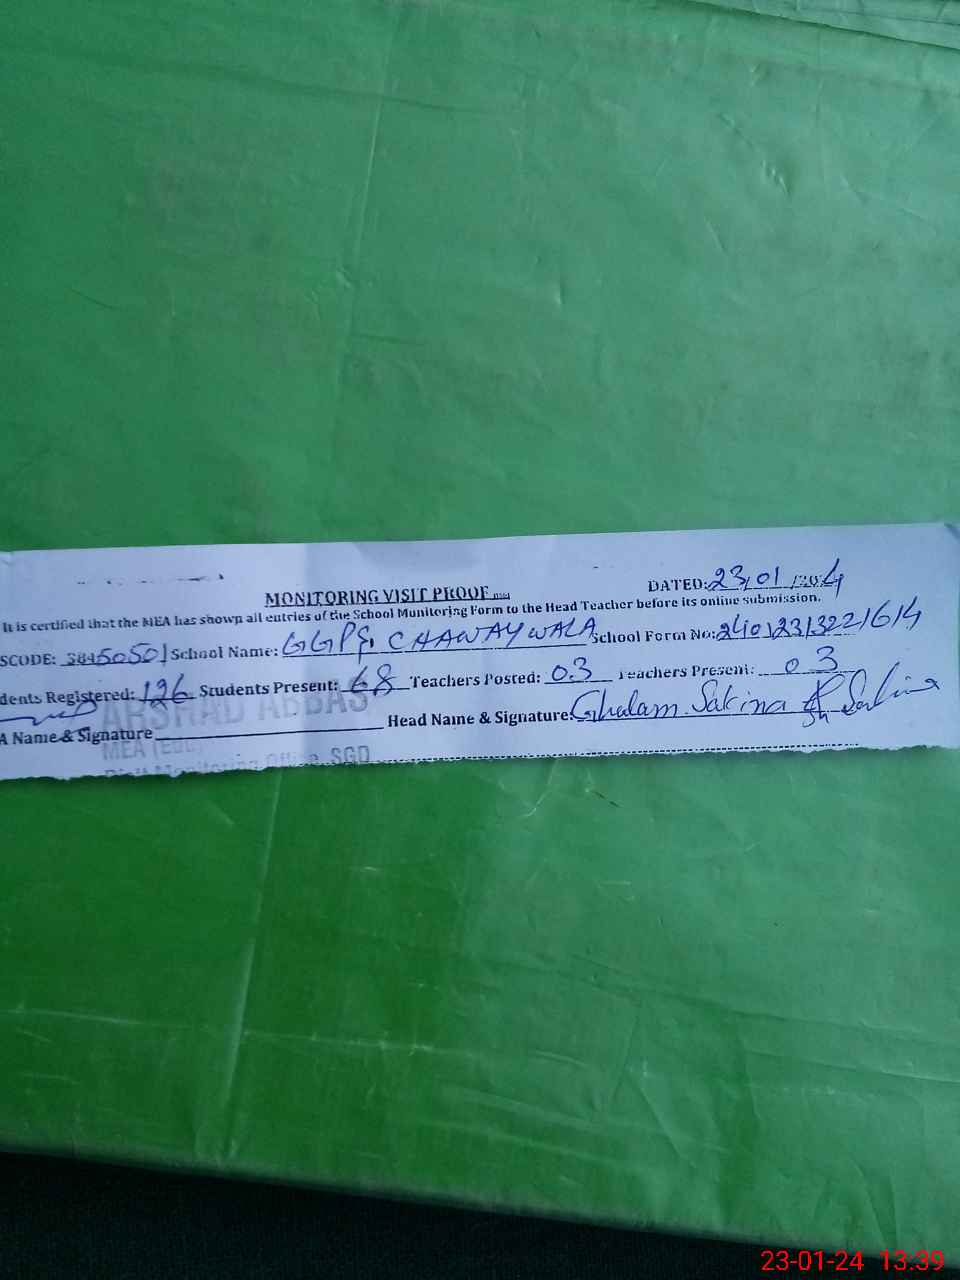 MONITORING VISIT PROOF
DATED: 23/01/2024
It is certified that the MEA has shown all entries of the School Monitoring Form to the Head Teacher before its online submission.
SCODE: 38450501 School Name: GGPS, CHAWAYWALA School Form No: 24012313221614
dents Registered: 126 Students Present: 68 Teachers Posted: 03 Teachers Present: 03
A Name & Signature Head Name & Signature: Ghulam Sakina
ARSHAD ABBAS
MEA (EDU)
Monitoring Office, SGD
23-01-24 13:39